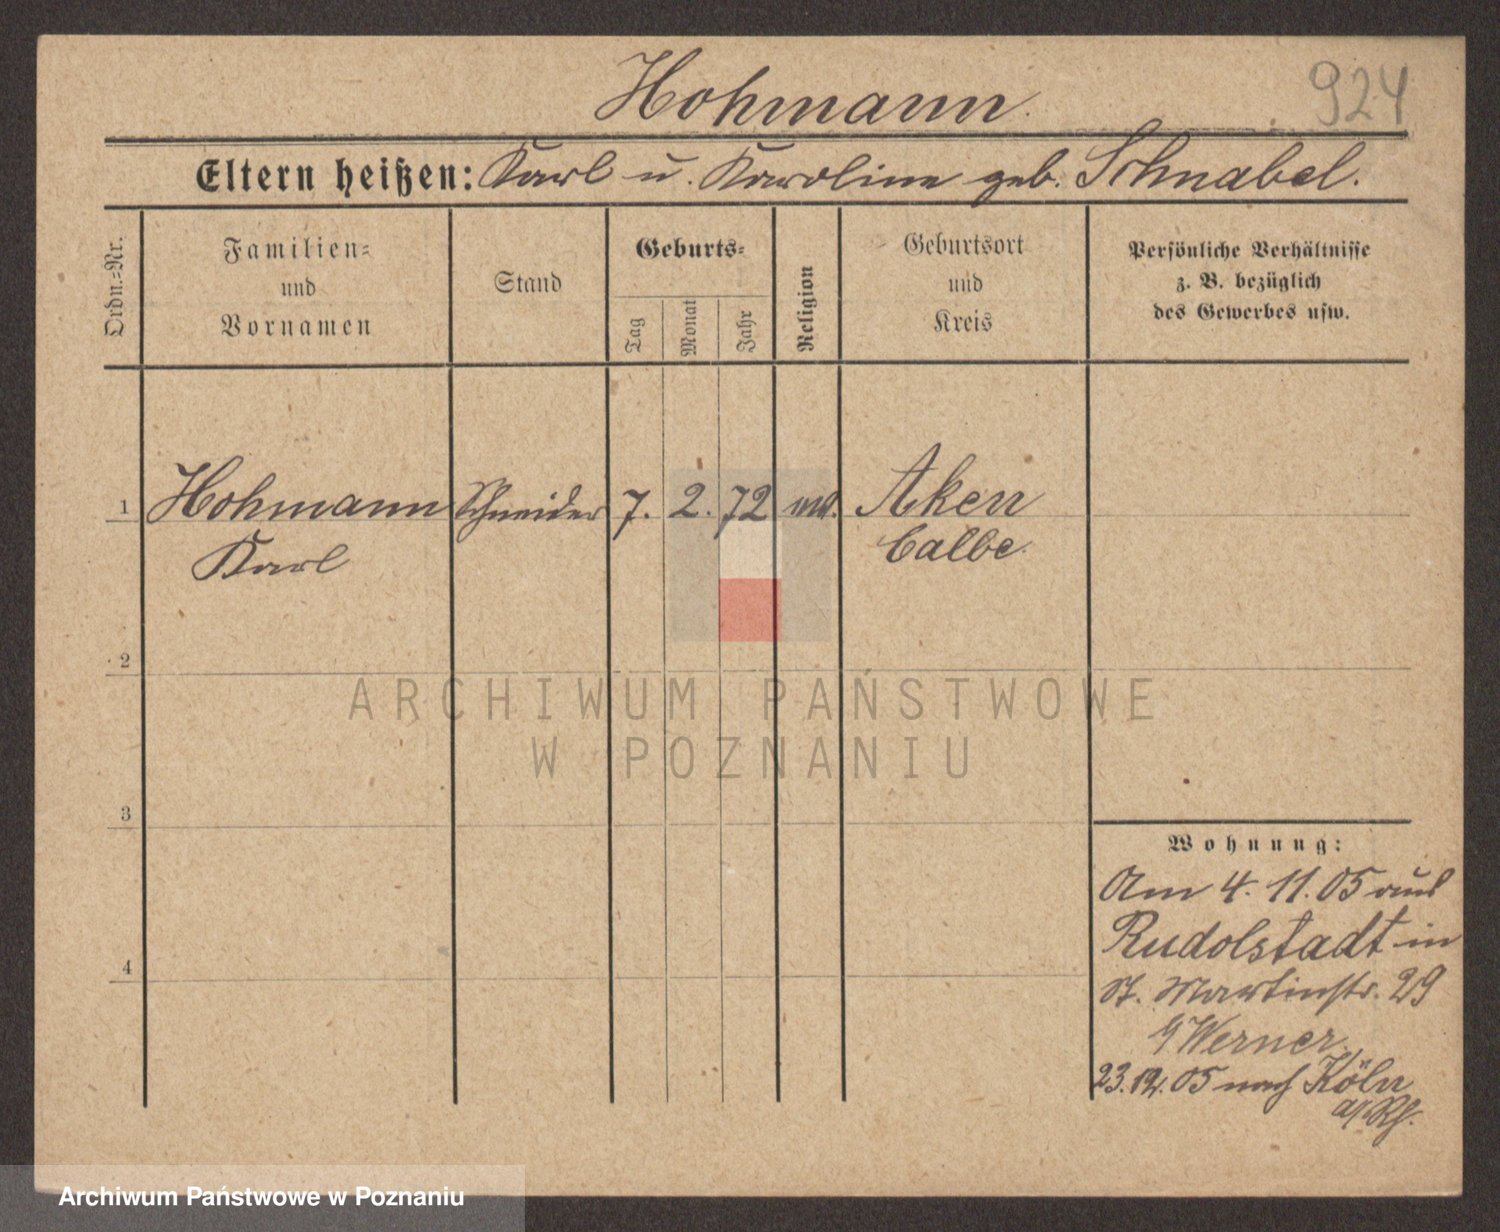 Hohmann.
924
Eltern heißen: Karl u. Karoline geb. Schnabel.
Ordn.=Nr.
Familien=
und
Vornamen
Stand
Geburts=
Tag
Monat
Jahr
Religion
Geburtsort
und
Kreis
Persönliche Verhältnisse
z. B. bezüglich
des Gewerbes usw.
1 Hohmann Schneider 7. 2. 72 Aken
Karl Calbe.
2
ARCHIWUM PAŃSTWOWE
W POZNANIU
3
Wohnung:
Am 4. 11. 05 aus
Rudolstadt in
St. Martinstr. 29
Werner.
4
23. 12. 05 nach Köln
a/Rh.
Archiwum Państwowe w Poznaniu